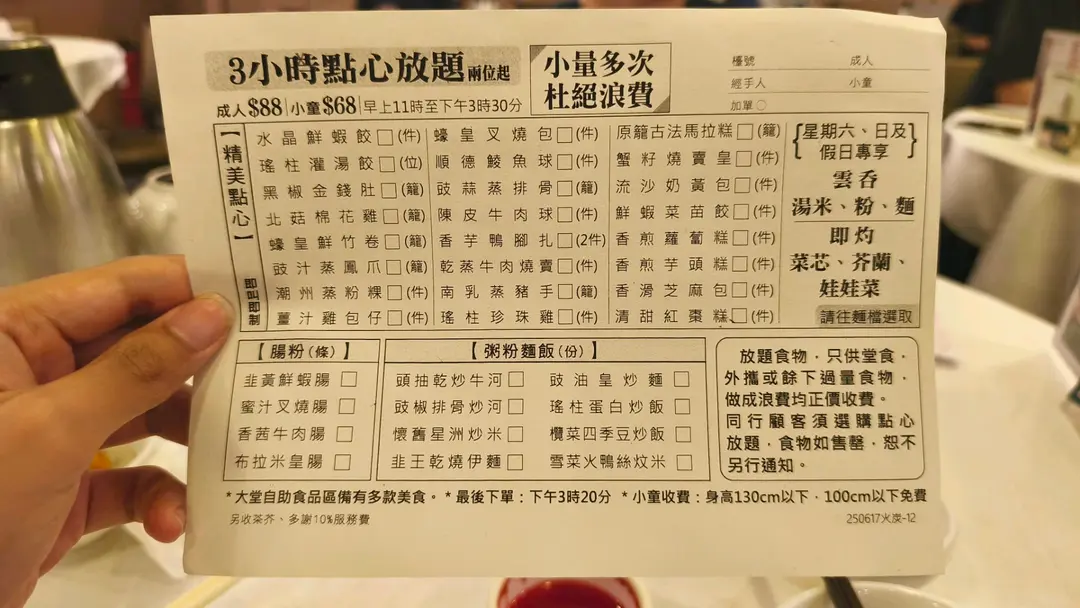 3小時點心放題 兩位起
成人$88 小童$68 早上11時至下午3時30分
小量多次
杜絕浪費
檯號 成人
經手人 小童
加單○
【精美點心】
即叫即製
水晶鮮蝦餃□(件)
瑤柱灌湯餃□(位)
黑椒金錢肚□(籠)
北菇棉花雞□(籠)
蠔皇鮮竹卷□(籠)
豉汁蒸鳳爪□(籠)
潮州蒸粉粿□(件)
薑汁雞包仔□(件)
蠔皇叉燒包□(件)
順德鯪魚球□(件)
豉蒜蒸排骨□(籠)
陳皮牛肉球□(件)
香芋鴨腳扎□(2件)
乾蒸牛肉燒賣□(件)
南乳蒸豬手□(籠)
瑤柱珍珠雞□(件)
原籠古法馬拉糕□(籠)
蟹籽燒賣皇□(件)
流沙奶黃包□(件)
鮮蝦菜苗餃□(件)
香煎蘿蔔糕□(件)
香煎芋頭糕□(件)
香滑芝麻包□(件)
清甜紅棗糕□(件)
{星期六、日及
假日專享}
雲呑
湯米、粉、麵
即灼
菜芯、芥蘭、
娃娃菜
請往麵檔選取
【腸粉(條)】
韭黃鮮蝦腸□
蜜汁叉燒腸□
香茜牛肉腸□
布拉米皇腸□
【粥粉麵飯(份)】
頭抽乾炒牛河□
豉椒排骨炒河□
懷舊星洲炒米□
韭王乾燒伊麵□
豉油皇炒麵□
瑤柱蛋白炒飯□
欖菜四季豆炒飯□
雪菜火鴨絲炆米□
放題食物，只供堂食，
外攜或餘下過量食物，
做成浪費均正價收費。
同行顧客須選購點心
放題，食物如售罄，恕不
另行通知。
*大堂自助食品區備有多款美食。*最後下單：下午3時20分 *小童收費：身高130cm以下，100cm以下免費
另收茶芥、多謝10%服務費
250617火炭-12